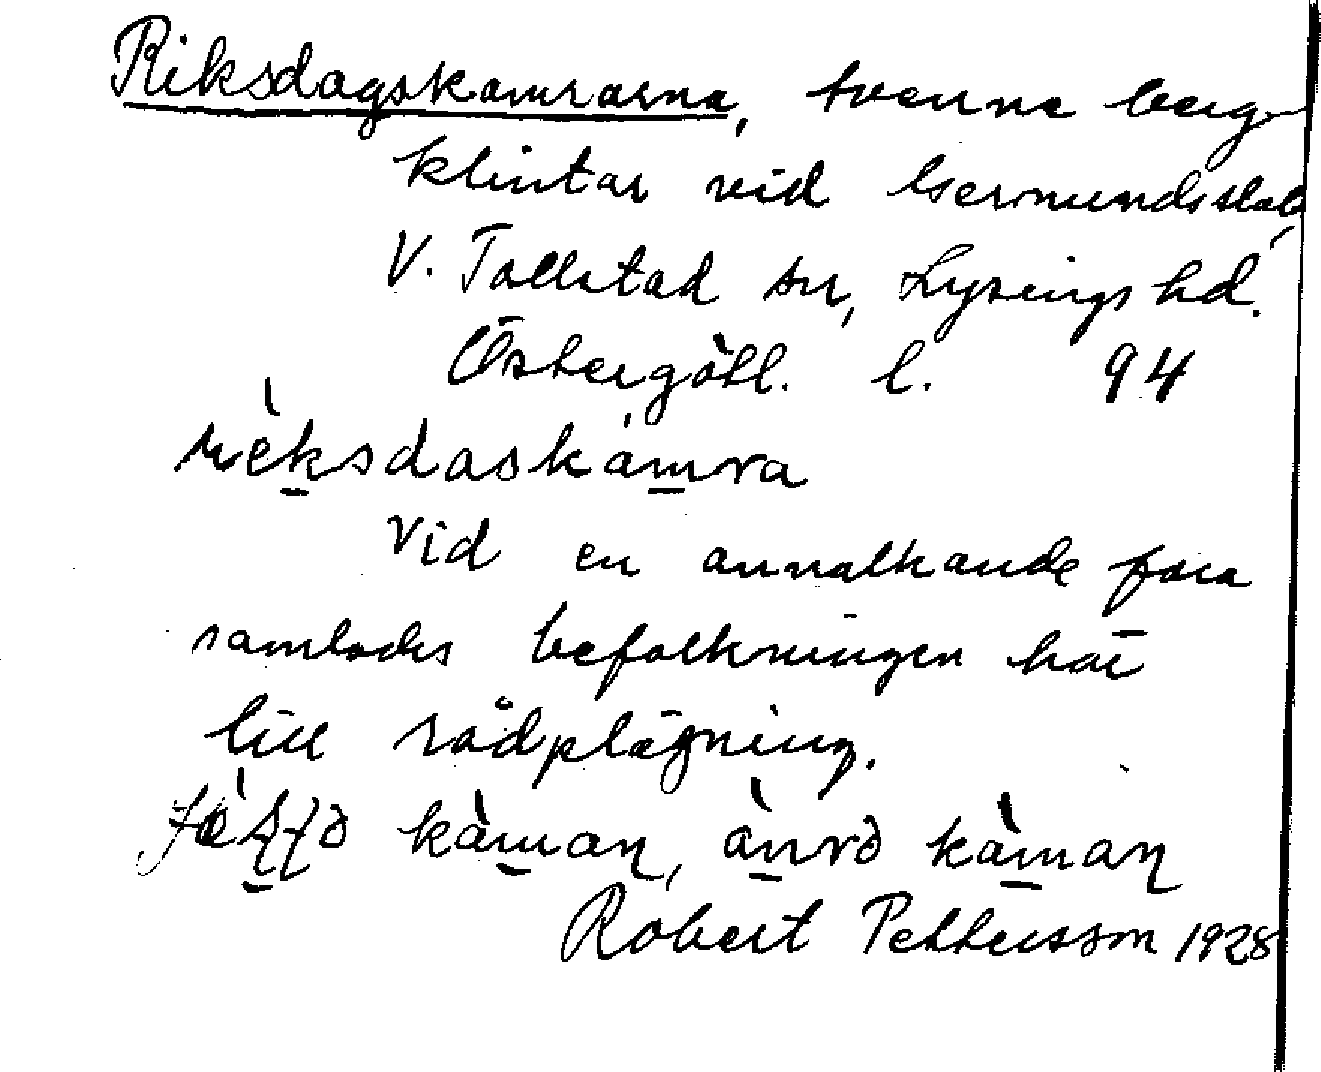 Riksdagskamrarna, tvenne berg-
klintar vid
V. Tollstad sn, Lysings hd.
Östergötl. l. 94
rèksdaskàmra
Vid en annalkande fara
samlades befolkningen här
till rådplägning.
kàmaɳ, ànrə kàmaɳ
Robert Pettersson 1928